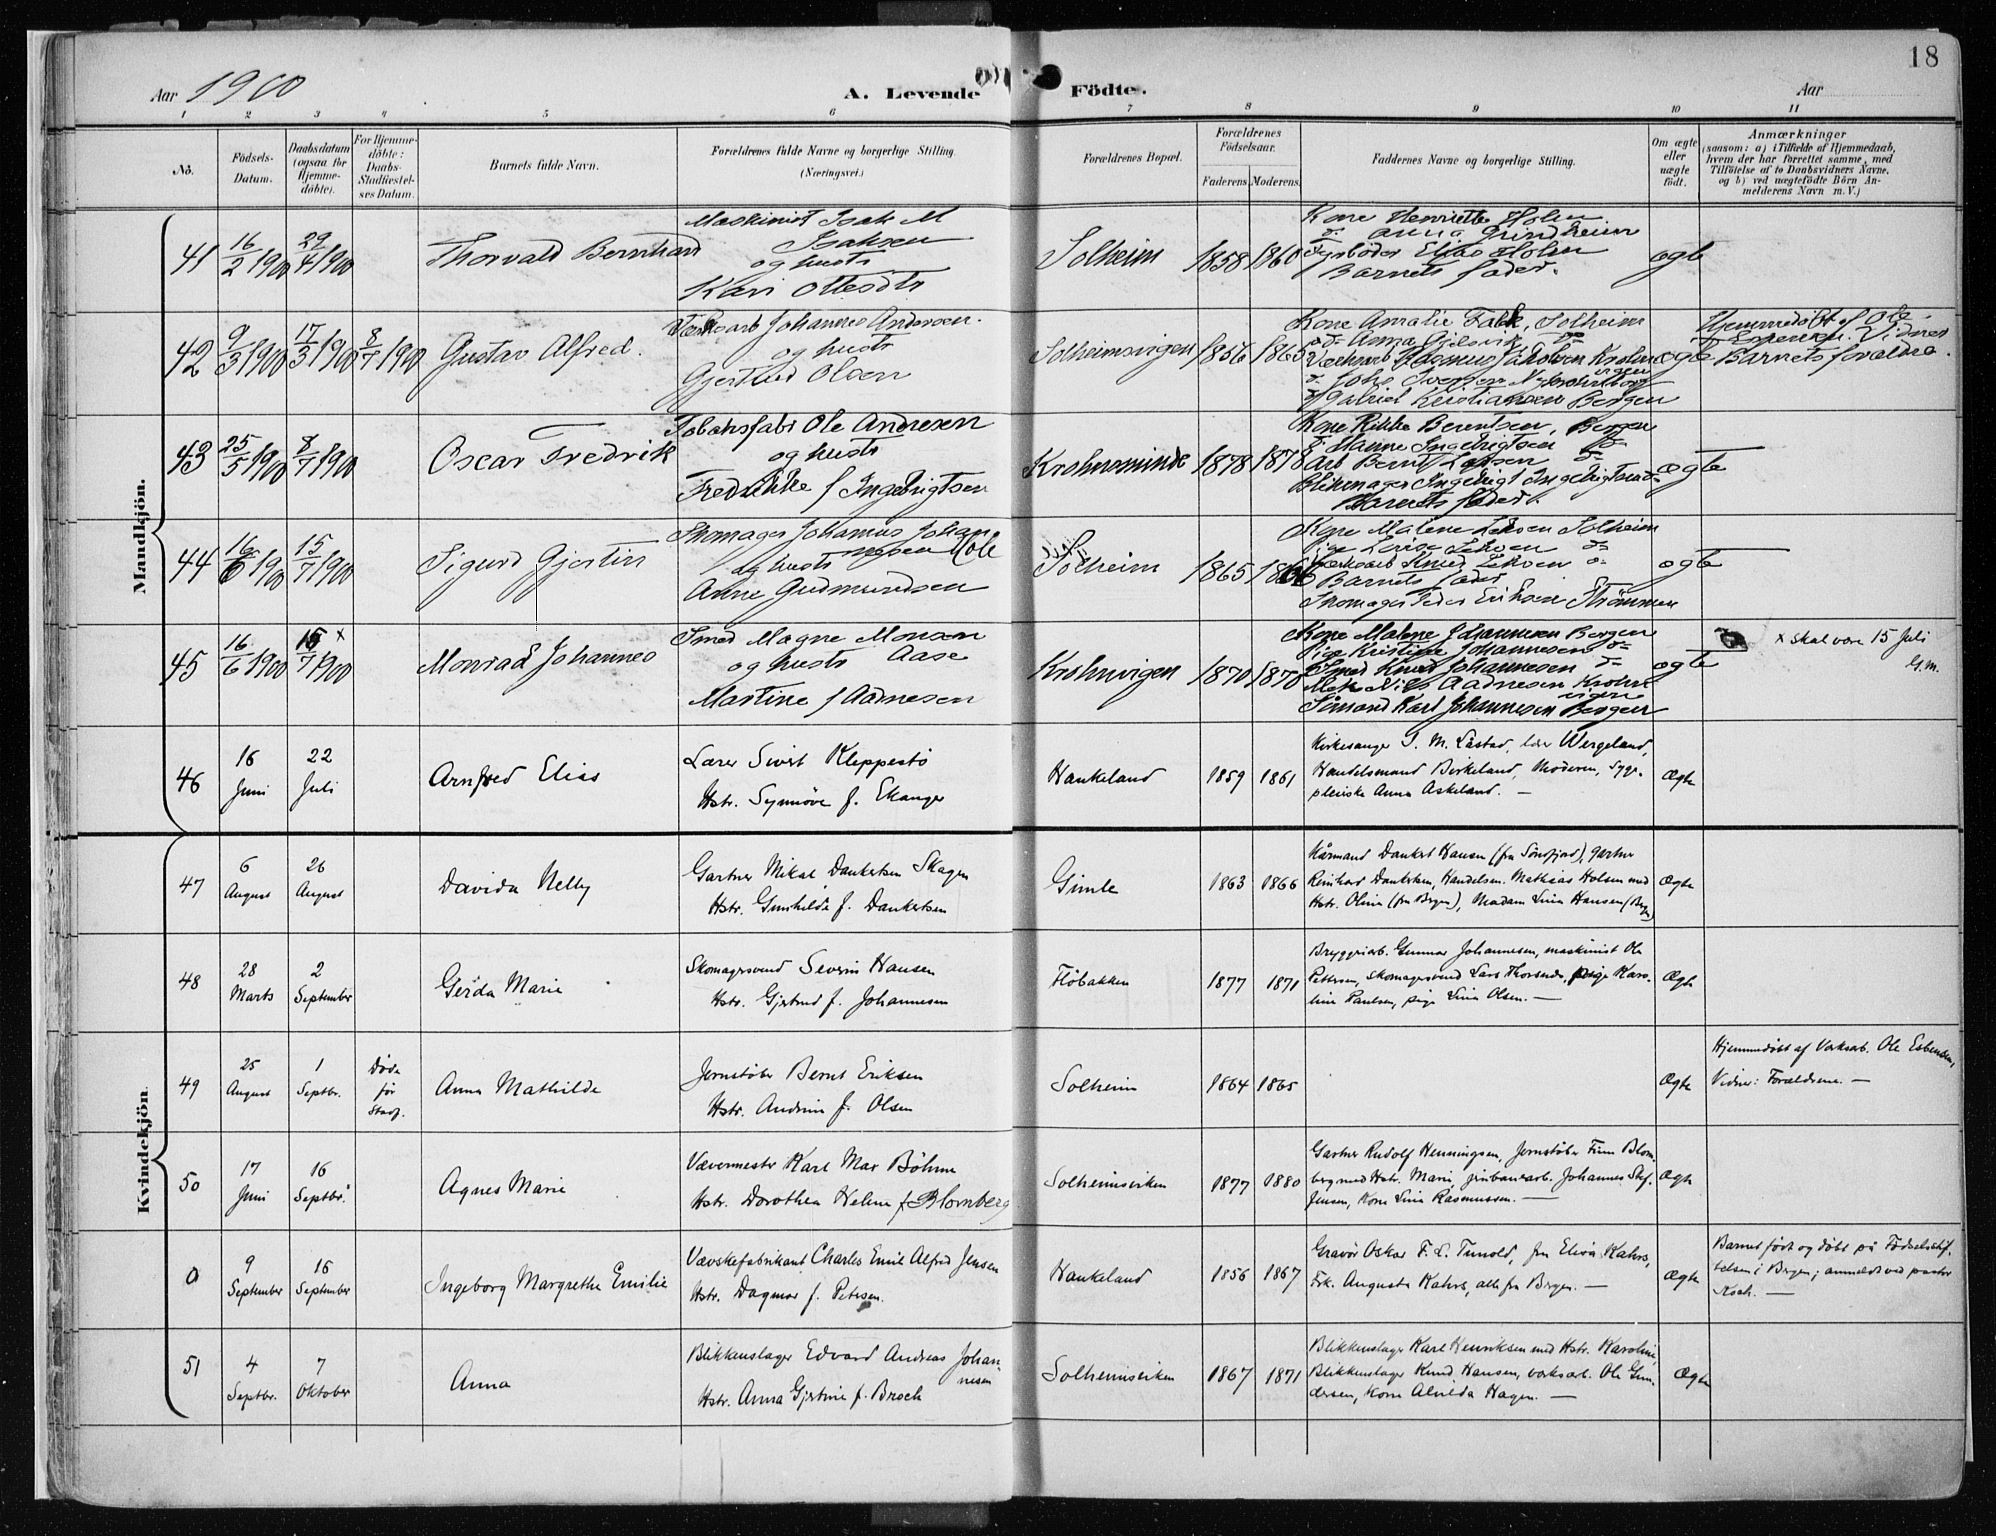 18
Aar 1900
A. Levende Födte.
Aar
1 2 3 4 5 6 7 8 9 10 11
No.
Födsels-
Datum.
Daabsdatum
(ogsaa for
Hjemme-
döbte).
For Hjemme-
döbte:
Daabs-
Stadfæstel-
ses Datum.
Barnets fulde Navn.
Forældrenes fulde Navne og borgerlige Stilling.
(Næringsvei.)
Forældrenes Bopæl.
Forældrenes
Födselsaar.
Faderens. Moderens.
Faddernes Navne og borgerlige Stilling.
Om ægte
eller
uægte
födt.
Anmærkninger
(saasom: a) i Tilfælde af Hjemmedaab,
hvem der har forrettet samme, med
Tilföielse af to Daabsvidners Navne,
og b) ved uægtefödte Börn An-
melderens Navn m. V.)
Mandkjön.
41
16/2 1900
29/4 1900
Thorvald Bernhard
Maskinist Isak M
Isaksen
og hustr
Kari Ottesdtr
Solheim
1858 1860
Kone Henriette Holen
do Anna Grindheim
Fyrbøder Elias Holen
Barnets fader.
ægte
42
9/3 1900
17/3 1900
8/7 1900
Gustav Alfred.
Værksarb Johannes Andersen.
og hustr
Gjertrud Olsen
Solheimsvigen
1856 1865
Kone Amalie Falk, Solheim
Kristiansen Bergen
ægte
Hjemmedøbt af Ole
Vidner
Barnets forældre.
43
25/5 1900
8/7 1900
Oscar Fredrik
Tobaksfabr Ole Andresen
og hustr
Fredrikke f Ingebrigtsen
Krohnsminde
1878 1878
Kone Rikke Berentsen, Bergen
do Hanne Ingebrigtsen do
Arb Bernt
Barnets fader.
ægte
44
16/6 1900
15/7 1900
Sigurd Gjertin
Skomager Johannes Johan
nesen Hole
og hustr
Anne Gudmundsen
Solheim
1865
Kone Malene Solheim
Pige Lovise
Værksarb Knud
Barnets fader
Skomager Peder Eriksen Strømmen
ægte
45
16/6 1900
15/7 1900 x
Monrad Johannes
Smed Magne Monsen
og hustr Aase
Martine f Aadnesen
Krohnvigen
1870 1870
Kone Malene Johannesen Bergen
Pige Kristine Johannesen do
Smed Knud Johannesen do
Nils Aadnesen Krohn
vigen
Sømand Karl Johannesen Bergen
ægte
x skal være 15 Juli
G.m.
46
16
Juni
22
Juli
Arnfred Elias
Lærer Sivert Kleppestö
Hstr. Synnöve f. Ekanger
Haukeland
1859 1861
Kirkesanger S. M. Låstad, lær Wergeland,
Handelsmand Birkeland, Moderen, Syge-
pleierske Anna Askeland. —
Ægte
Kvindekjön
47
6
August
26
August
Davida Nelly
Gartner Mikal Dankertsen Skagen
Hstr. Gunhilde f. Dankertsen
Gimle
1863 1866
Kårmand Dankert Hansen (fra Söndfjord), gartner
Reinhard Dankertsen, Handelsm. Mathias Holsen med
Hstr. Olina (fra Bergen), Madam Lina Hansen (Bergen)
Ægte
48
28
Marts
2
September
Gerda Marie
Skomagersvend Severin Hansen
Hstr. Gjertrud f. Johannesen
Flöbakken
1877 1871
Bryggeriarb. Gunnar Johannesen, maskinist Ole
Pettersen, Skomagersvend Lars Thorsnes, pige Karo-
line Paulsen, pige Lina Olsen. —
Ægte
49
25
August
1
Septbr.
Döde
för
Stadf.
Anna Mathilde
Jernstöber Bernt Eriksen
Hstr. Andrine f. Olsen
Solheim
1864 1865
Ægte
Hjemmedöbt af Værksarb. Ole Esbensen,
Vidner: Forældrene. —
50
17
Juni
16
Septbr.
Agnes Marie
Vævermester Karl Max Böhme
Hstr. Dorothea Helene f. Blomberg
Solheimsviken
1877 1880
Gartner Rudolf Henningsen, Jernstöber Finn Blom-
berg med Hstr. Marie, jernbanearb. Johannes Stef-
fensen, Kone Lina Rasmussen. —
Ægte
0
9
September
16
September
Ingeborg Margrethe Emilie
Vævskefabrikant Charles Emil Alfred Jensen
Hstr. Dagmar f. Petersen.
Haukeland
1856 1867
Gravör Oskar F. L. Tunold, fru Elisa Kahrs,
Frk. Augusta Kahrs, alle fra Bergen. —
Ægte
Barnet födt og döbt på Födselsstif-
telsen i Bergen; anmeldt ved pastor
Koch. —
51
4
Septbr.
7
Oktober
Anna
Blikkenslager Edvard Andreas Johan-
nesen
Hstr. Anna Gjertine f. Broch
Solheimsviken
1867 1871
Blikkenslager Karl Henriksen med Hstr. Karoline,
Blikkenslager Knud Hansen, værksarb. Ole Gun-
dersen, Kone Alvilda Hagen. —
Ægte